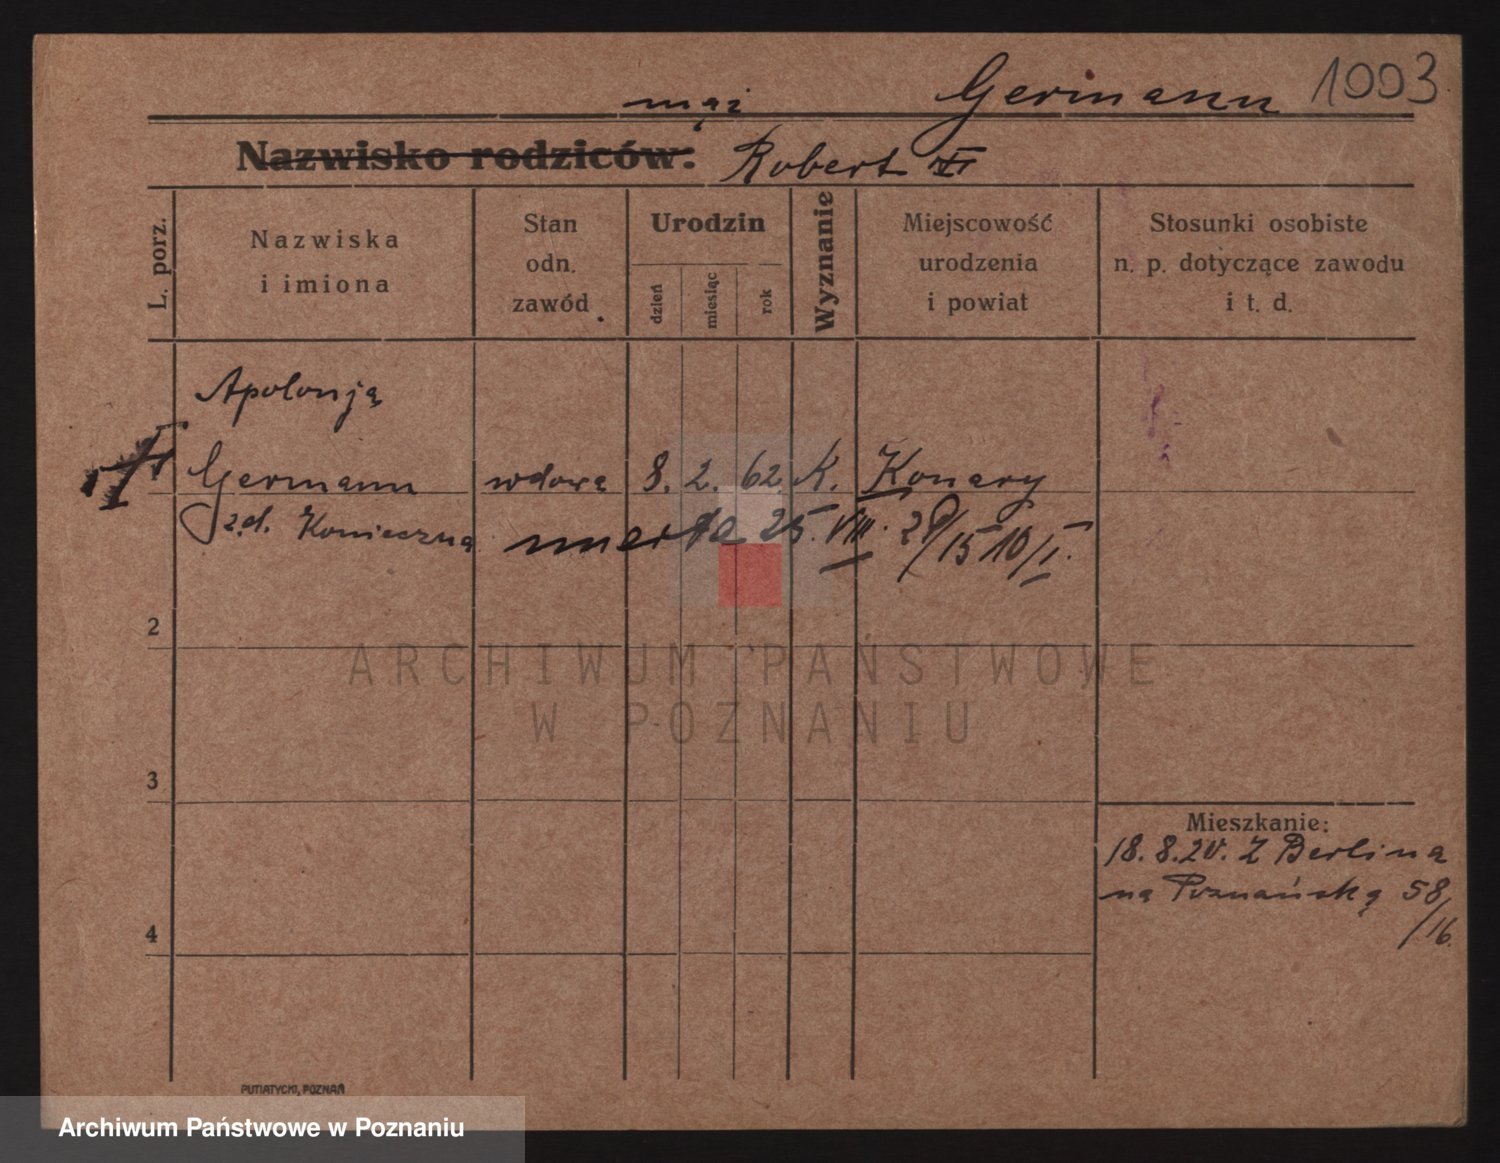 Germann 1003
mąż
Nazwisko rodziców: Robert
L. porz.
Nazwiska
i imiona
Stan
odn.
zawód
Urodzin
dzień
miesiąc
rok
Wyznanie
Miejscowość
urodzenia
i powiat
Stosunki osobiste
n. p. dotyczące zawodu
i t. d.
Apolonją
Germann wdowa 8. 2. 62. K. Konary
z.d. Konieczna
umarła 25. VIII. 29/1510/I.
2
3
4
Mieszkanie:
18. 8. 20. Z Berlina
na Poznańską 58
/16.
PUTIATYCKI, POZNAŃ
ARCHIWUM PAŃSTWOWE
W POZNANIU
Archiwum Państwowe w Poznaniu